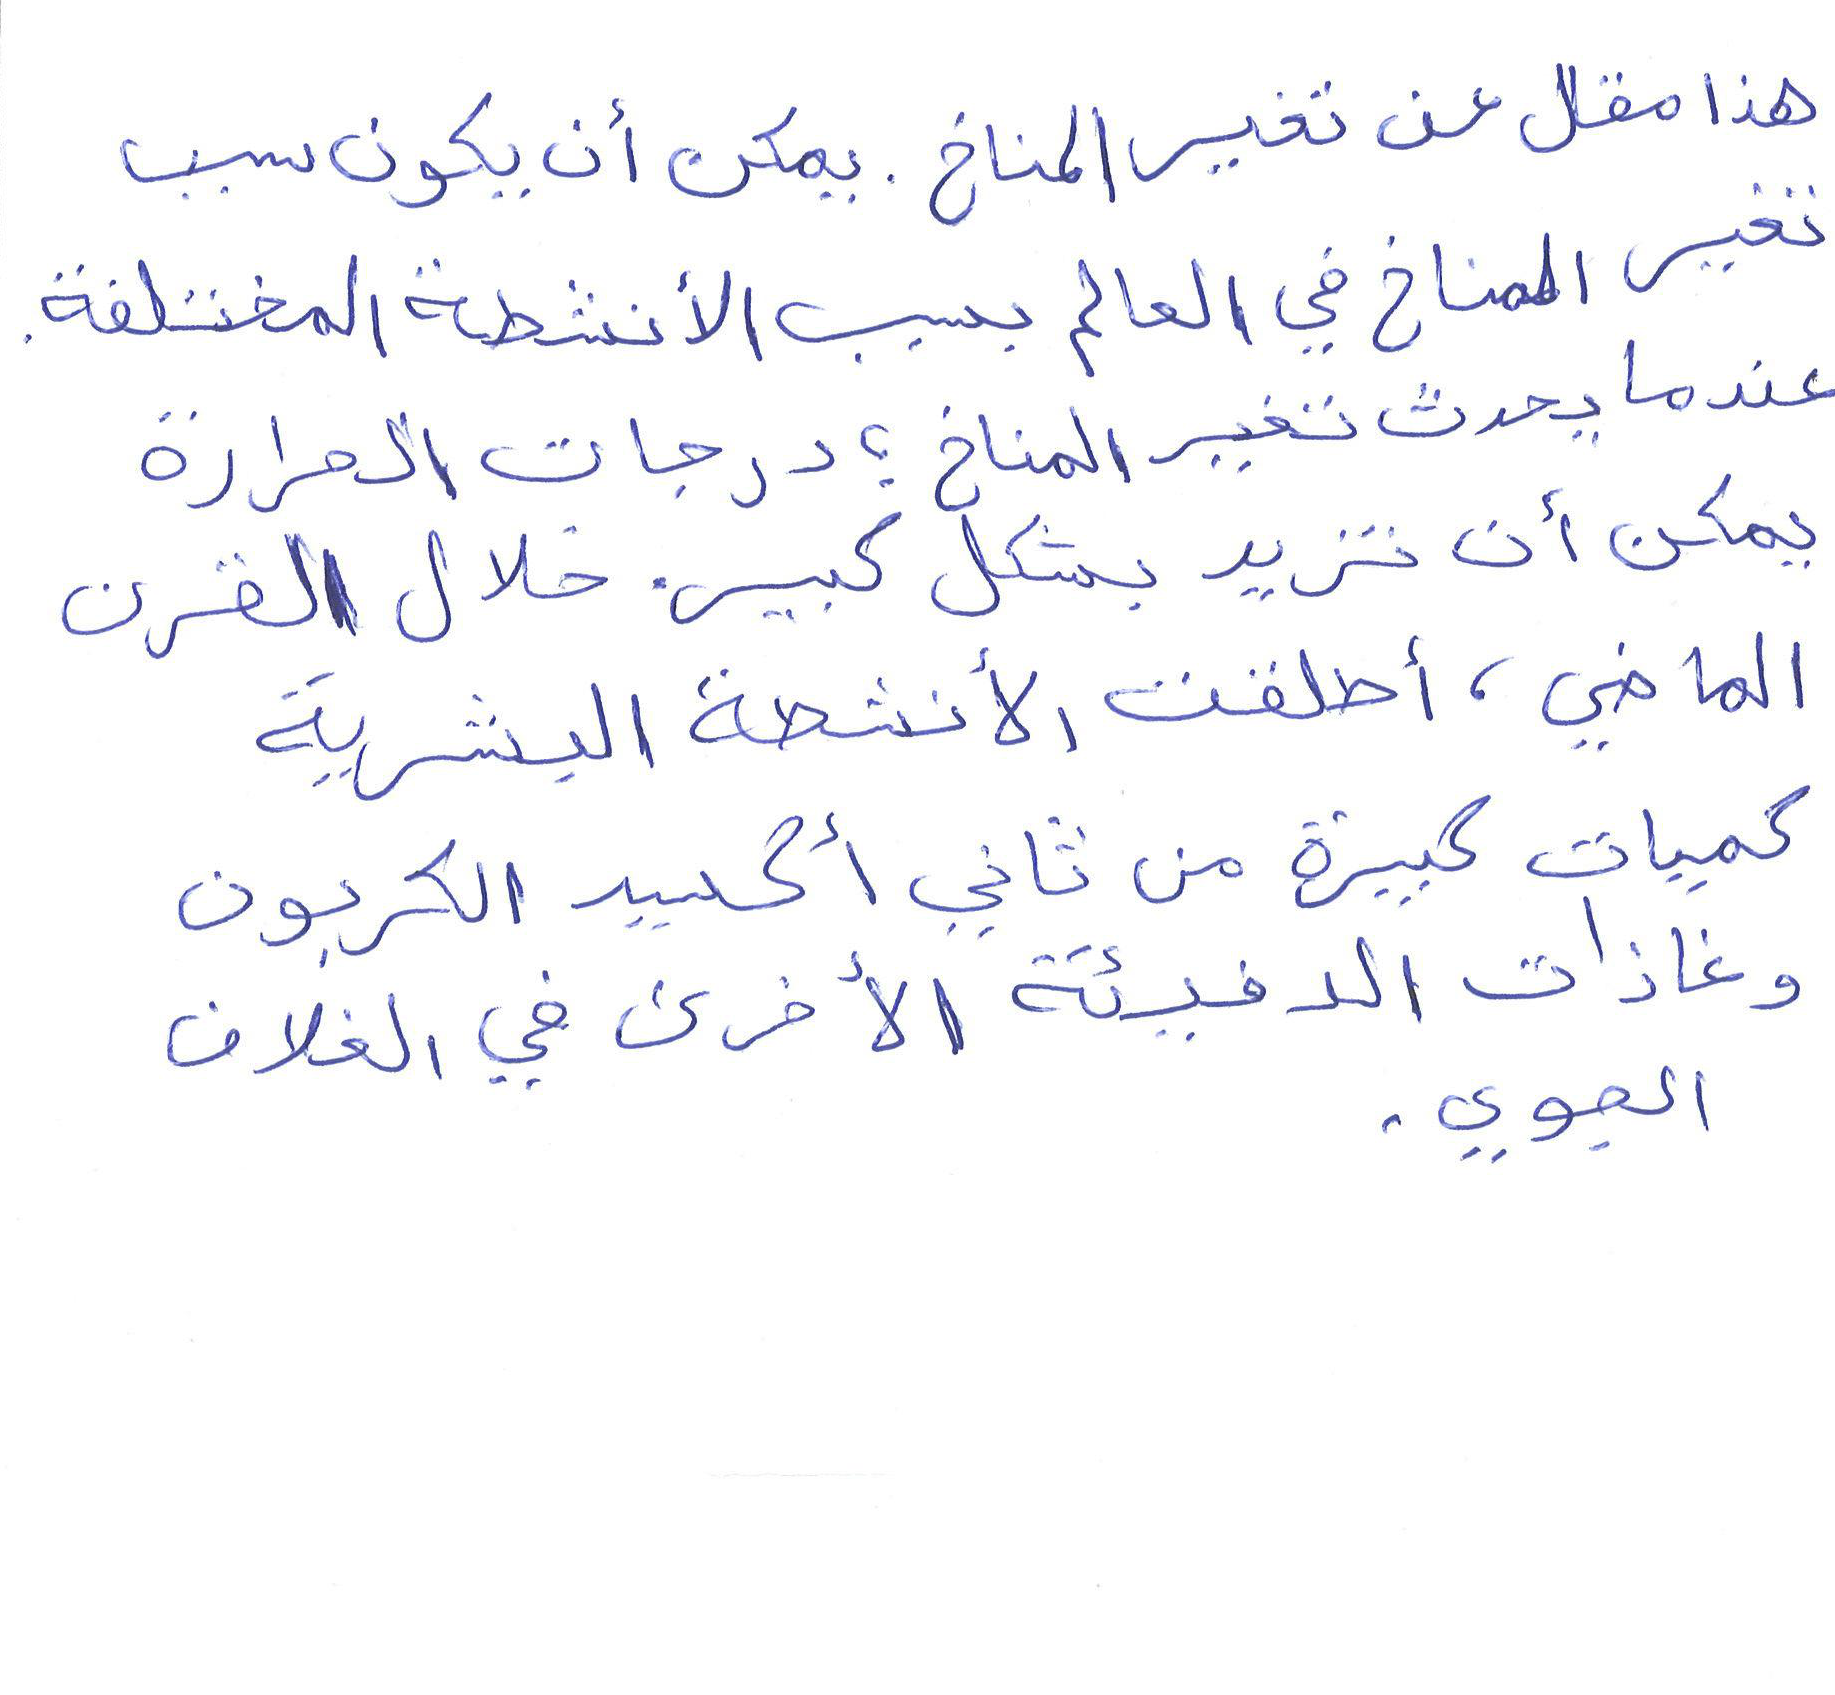 هذا مقال عن تغير المناخ. يمكن أن يكون سبب
تغير المناخ في العالم بسبب الأنشطة المختلفة.
عندما يحدث تغير المناخ ؛ درجات الحرارة
يمكن أن تزيد بشكل كبير. خلال القرن
الماضي، أطلقت الأنشطة البشرية
كميات كبيرة من ثاني أكسيد الكربون
وغازات الدفيئة الأخرى في الغلاف
الجوي.